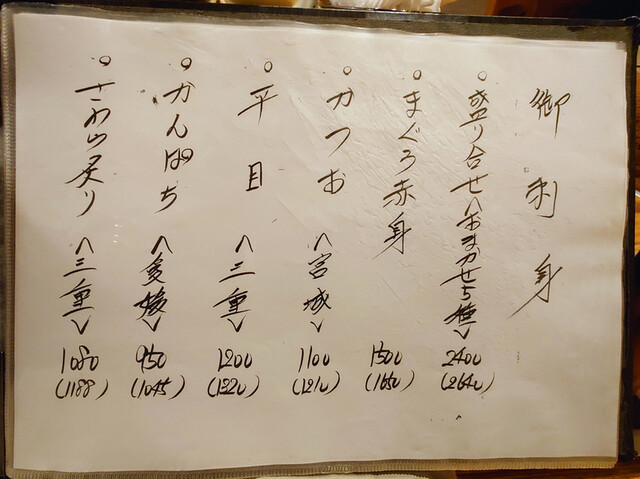 御刺身
○盛り合せ〈おまかせ5種〉 2400 (2640)
○まぐろ赤身 1500 (1650)
○かつお〈宮城〉 1100 (1210)
○平目〈三重〉 1200 (1320)
○かんぱち〈愛媛〉 950 (1045)
○さわら炙り〈三重〉 1080 (1188)